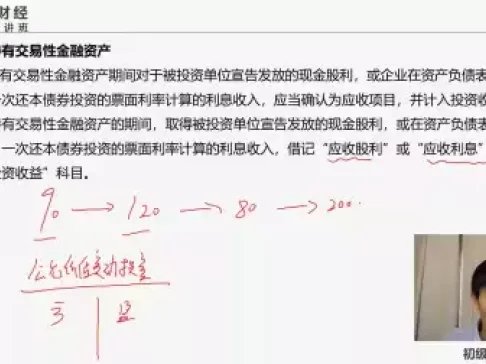 财经
讲班
有交易性金融资产
有交易性金融资产期间对于被投资单位宣告发放的现金股利，或企业在资产负债表
一次还本债券投资的票面利率计算的利息收入，应当确认为应收项目，并计入投资收
有交易性金融资产的期间，取得被投资单位宣告发放的现金股利，或在资产负债表
一次还本债券投资的票面利率计算的利息收入，借记“应收股利”或“应收利息”
资收益”科目。
90 → 120 → 80 → 200
公允价值变动损益
亏 盈
初级